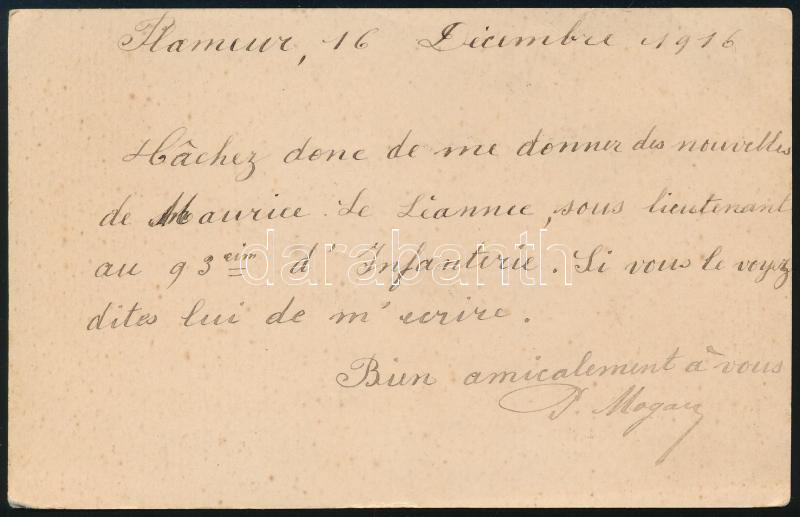 Plameur, 16 Décembre 1916
Tâchez donc de me donner des nouvelles
de Maurice Le Léannec, sous lieutenant
au 93 eim d'Infanterie. Si vous le voyez
dites lui de m'ecrire.
Bien amicalement à vous
darabanth